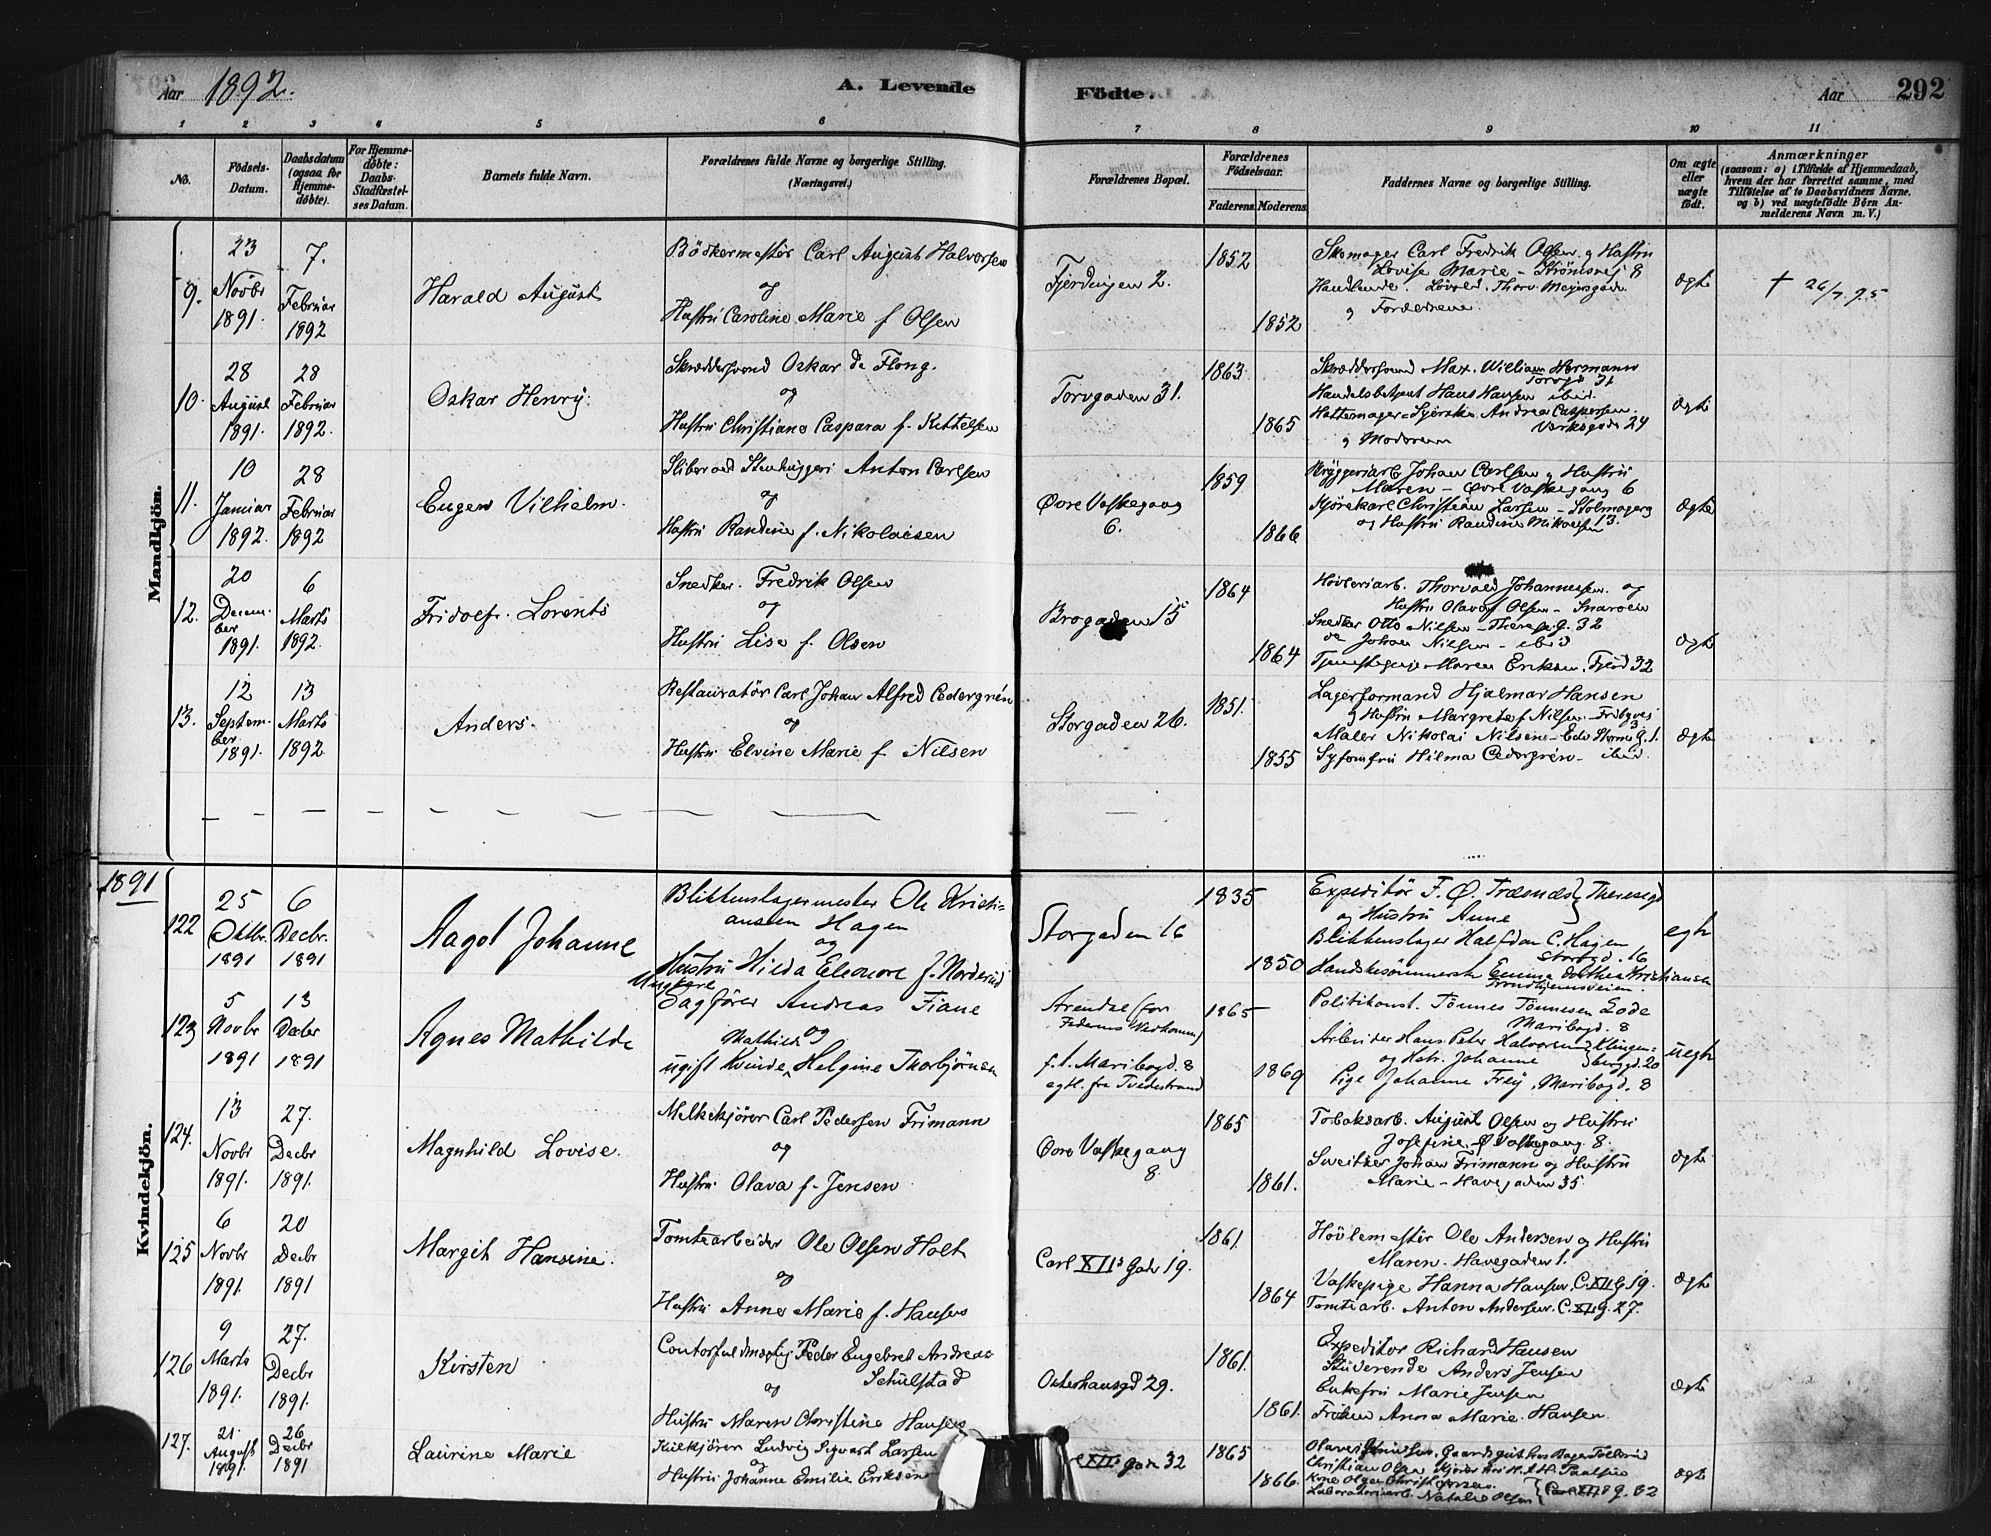 Aar 1892.
A. Levende
Födte.
Aar
292
1 2 3 4 5 6 7 8 9 10 11
No.
Födsels-
Datum.
Daabsdatum
(ogsaa for
Hjemme-
døbte).
For Hjemme-
døbte:
Daabs-
Stadfæstel-
ses Datum.
Barnets fulde Navn.
Forældrenes fulde Navne og borgerlige Stilling.
(Næringsvei.)
Forældrenes Bopæl.
Forældrenes
Födselsaar.
Faderens. Moderens.
Faddernes Navne og borgerlige Stilling.
Om ægte
eller
uægte
födt.
Anmærkninger
(saasom: a) i Tilfælde af Hjemmedaab,
hvem der har forrettet samme, med
Tilföielse af to Daabsvidners Navne.
og b) ved uægtefödte Börn An-
melderens Navn m. V.)
Mandkjön.
9.
23
Novbr
1891.
7.
Februar
1892
Harald August
Bödkermester Carl August Halvorsen
og
Hustru Caroline Marie f Olsen
Fjerdingen 2.
1852
1852
Skomager Carl Fredrik Olsen og Hustru
Lovise Marie - Strömsvej 8
Handlende Thorv. Meyersgade
og Forældrene
Ægte
† 26/7 95
10.
28
August
1891.
28
Februar
1892.
Oskar Henry.
Skræddersvend Oskar de Flong.
og
Hustru Christiane Caspara f. Kittelsen
Torvgaden 31.
1863
1865
Skræddersvend Max. William Hermann
Torvgd 31
Handelsbetjent Hans Hansen ibid.
Hattemager- Andrea Caspersen.
Værksgade 24
og Moderen
Ægte
11.
10
Januar
1892.
28
Februar
1892
Eugen Vilhelm.
Sliber ved Stenhuggeri Anton Carlsen
og
Hustru Randine f. Nikolaisen
Øvre Vaskegang
6.
1859
1866
Bryggeriarb. Johan Carlsen og Hustru
Maren - Øvre Vaskegang 6
Kjörekarl Christian Larsen - Stolmagerg
og Hustru Randine Mikaelsen 13.
Ægte
12.
20
Decem-
ber
1891.
6
Marts
1892.
Fridolf. Lorents
Snedker. Fredrik Olsen
og
Hustru Lise f. Olsen
Brogaden 15
1864
1864
Hövleriarb. Thorvald Johannessen. og
Hustru Olava f Olsen - Snaroen
Snedker Otto Nilsen - Therese g. 32
do Johan Nilsen - ibid
Tjenestepige Maren Eriksen. Fjerd 32
Ægte
13.
12
Septem-
ber
1891.
13
Marts
1892
Anders.
Restauratör Carl Johan Alfred Cedergrén
og
Hustru Elvine Marie f Nilsen
Storgaden 26.
1851.
1855
Lagerformand Hjalmar Hansen
og Hustru Margrete f Nilsen - Fribyvej
3
Maler Nikolai Nilsen - Edv Stormg. 1.
Syjomfru Hilma Cedergrén - ibid.
Ægte
1891
Kvindekjön.
122
25
Oktbr.
1891
6
Decbr.
1891
Aagot Johanne
Blikkenslagermester Ole Kristi-
ansen Hagen
og
Hustru Hilda Eleonore f. Norderud
Storgaden 16
1835
1850
Expeditör F. Ø. Trænæs } Theresegd
og Hustru Anne
Blikkenslager Halfdan C. Hagen
Storgd. 16
Handskesömmerske Emma Dorthea Kristiansen
Trondhjemsveien.
egte
123
5
Novbr
1891
13
Decbr
1891
Agnes Mathilde
Ungkarl
Sagförer Andreas Fiane
og
Mathilde
ugift Kvinde Helgine Thorbjörnsen
Arendal (for
Faderens Vedkomm)
f. t. Maribogd. 8
egtl. fra Tvedestrand
1865
1869
Politikonst. Tönnes Tönnesen Lode
Maribogd. 8
Arbeider Hans Peter Halvorsen } Klingen-
og Hstr. Johanne } berggd. 20
Pige Johanne Frey, Maribogd. 8
uegte
124.
13
Novbr
1891.
27.
Decbr
1891.
Magnhild Lovise.
Melkekjörer Carl Pedersen Frimann
og
Hustru Olava f. Jensen
Øvre Vaskegang
8.
1865
1861.
Tobaksarb. August Olsen og Hustru
Josefine. Ø Vaskegang. 8.
Sveitzer Johan Frimann og Hustru
Marie - Havegaden 35.
Ægte
125
6
Novbr
1891.
20
Decbr
1891
Margit Hansine.
Tomtearbeider Ole Olsen Holt
og
Hustru Anne Marie f. Hansen
Carl XII's Gade 19.
1861.
1864
Hövlemester Ole Andersen og Hustru
Maren. Havegaden 1.
Vaskepige Hanna Hansen C. XII g. 19.
Tomtearb. Anton Andersen. C. XII g. 27.
Ægte
126
9
Marts
1891.
27.
Decbr
1891.
Kirsten
Contorfuldmægtig Peder Engebret Andreas
Schulstad
og
Hustru Maren Christine Hansen
Osterhausgd 29.
1861.
1861.
Expeditor Richard Hansen
Studerende Anders Jensen
Enkefru Marie Jensen
Fröken Anna Marie Hansen.
Ægte
127.
21.
August
1891.
26
Decbr
1891
Laurine Marie
Kulkjörer Ludvig Sigvart Larsen
og
Hustru Johanne Emilie Eriksen
XII's gade 32
1865
1866.
Christian Olsen
Laboratoriearb. Natalie Olsen
Carl XII's g. 32
Ægte